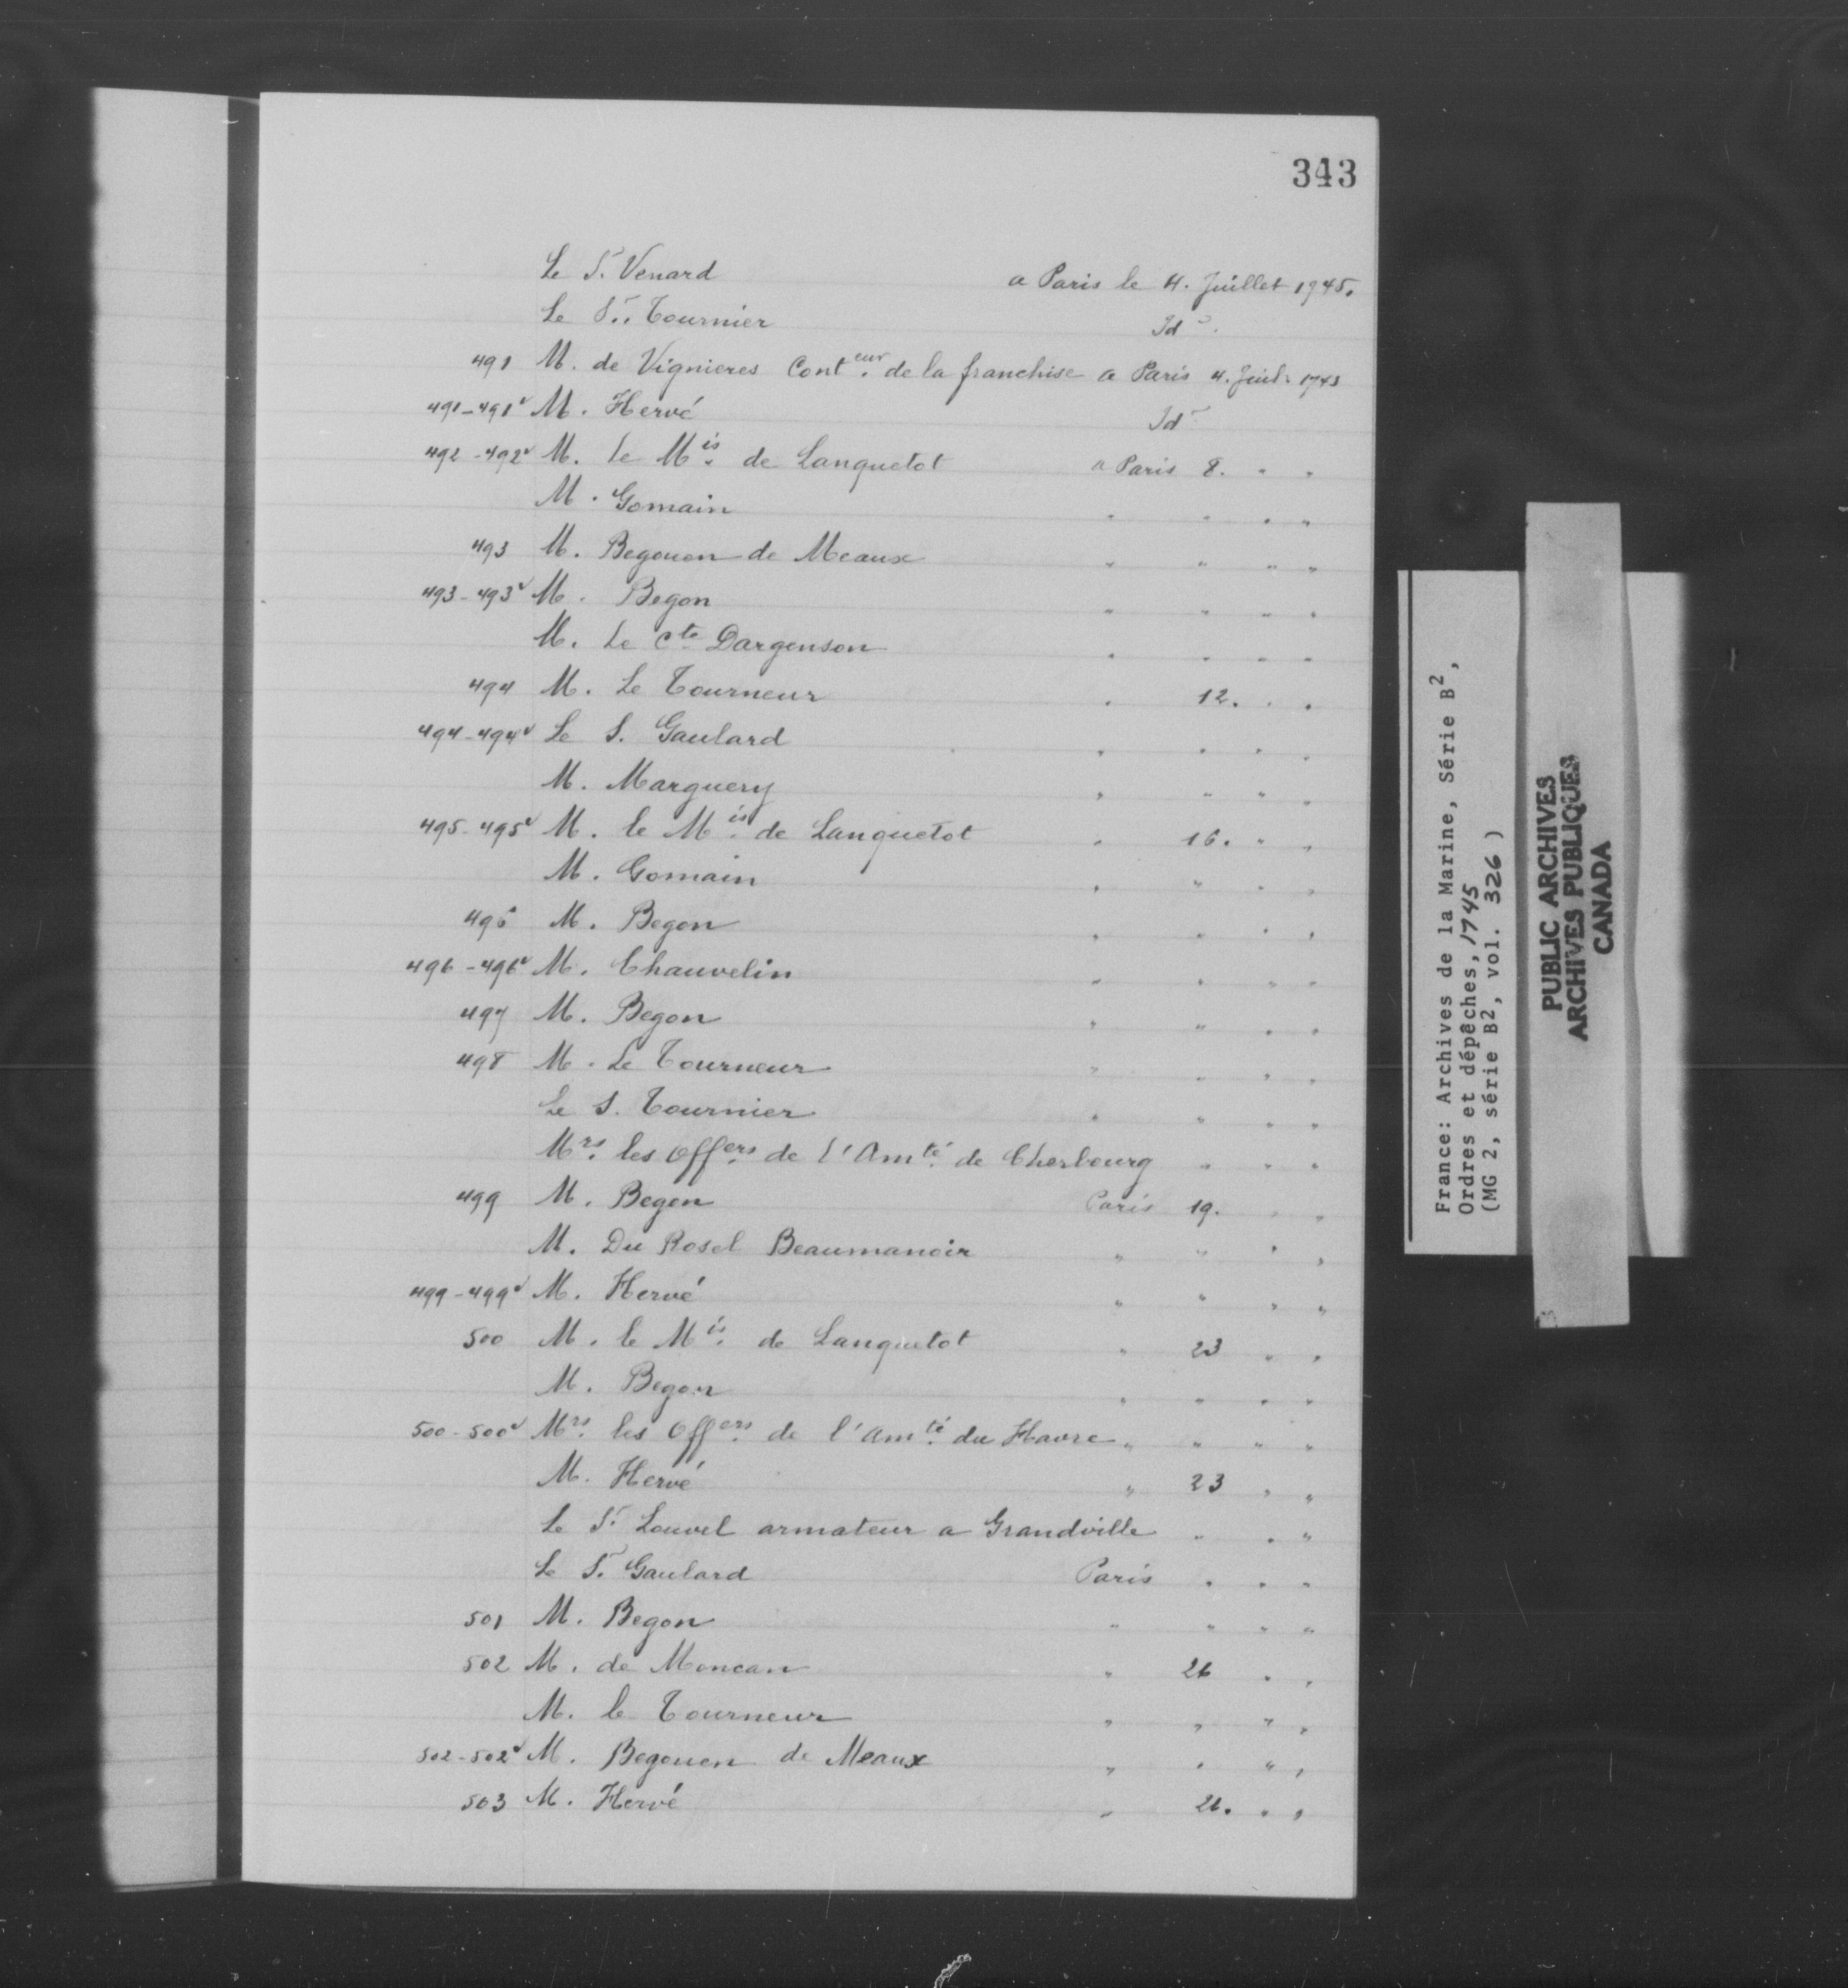 343
Le Sr. Venard a Paris le 4. Juillet 1745.
Le Sr. Tournier Id
491 M. de Vignieres Conteur. de la franchise a Paris 4. Juil. 1745
491-491v M. Hervé Id
492-492v M. le Mis. de Languetot a Paris 8. " "
M. Gomain " " " "
493 M. Begouen de Meaux " " " "
493-493v M. Begon " " " "
M. le Cte Dargenson " " " "
494 M. Le Tourneur " 12. " "
494-494v Le S. Gaulard " " " "
M. Marguery " " " "
495-495v M. le Mis. de Languetot " 16. " "
M. Gomain " " " "
496 M. Begon " " " "
496-496v M. Chauvelin " " " "
497 M. Begon " " " "
498 M. Le Tourneur " " " "
Le S. Tournier " " " "
Mrs. les Offers. de l'Amté. de Cherbourg " " "
499 M. Begon Paris 19. " "
M. Du Rosel Beaumanoir " " " "
499-499v M. Hervé " " " "
500 M. le Mis. de Languetot " 23 " "
M. Begon " " " "
500-500v Mrs. les Offers. de l'amté. du Havre " " " "
M. Hervé " 23 " "
Le Sr. Louvel armateur a Grandville " " "
Le Sr. Gaulard Paris " " "
501 M. Begon " " " "
502 M. de Moncan " 26 " "
M. le Tourneur " " " "
502-502v M. Begouen de Meaux " " " "
503 M. Hervé " 26. " "
France: Archives de la Marine, Série B2,
Ordres et dépêches, 1745
(MG 2, série B2, vol. 326)
PUBLIC ARCHIVES
ARCHIVES PUBLIQUES
CANADA